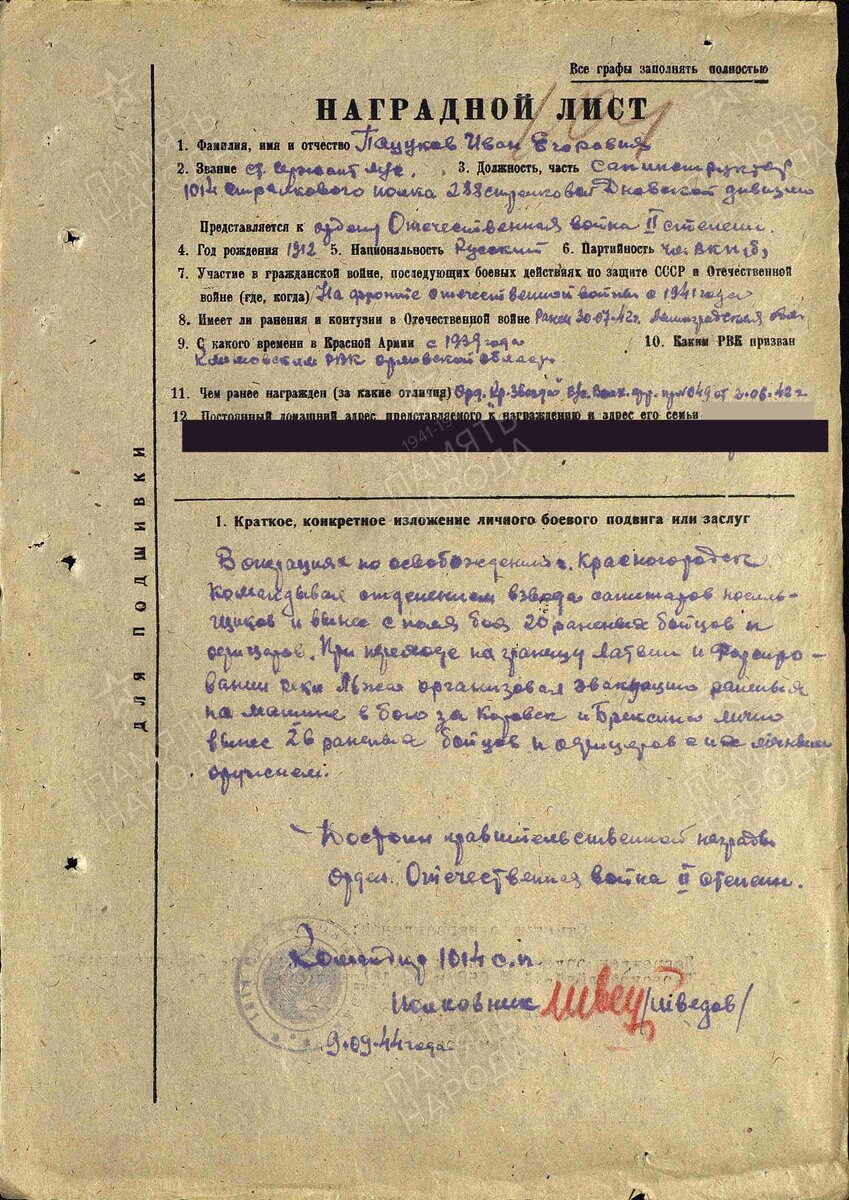 Все графы заполнять полностью
НАГРАДНОЙ ЛИСТ
1. Фамилия, имя и отчество Пацуков Иван Егорович
2. Звание ст. сержант м/с. 3. Должность, часть Санинструктор
1014 стрелкового полка 288 стрелковой Дновской дивизии
Представляется к ордену Отечественная война II степени.
4. Год рождения 1912 5. Национальность Русский 6. Партийность чл. ВКП(б)
7. Участие в гражданской войне, последующих боевых действиях по защите СССР и Отечественной
войне (где, когда) На фронте отечественной войны с 1941 года
8. Имеет ли ранения и контузии в Отечественной войне Ранен 30.07.42г. Ленинградская обл.
9. С какого времени в Красной Армии с 1939 года 10. Каким РВК призван
Климовским РВК Орловской области
11. Чем ранее награжден (за какие отличия) Орд. Кр. Звезда фр. пр № 049 от 2.06.42г.
12. Постоянный домашний адрес представляемого к награждению и адрес его семьи
ДЛЯ ПОДШИВКИ
1. Краткое, конкретное изложение личного боевого подвига или заслуг
В операциях по освобождению г. Красногородск
командывал отделением взвода санитаров носиль-
щиков и вынес с поля боя 20 раненых бойцов и
офицеров. При переходе на границу Латвии и форсиро-
вании реки Лжа организовал эвакуацию раненых
на машине в бою за и лично
вынес 26 раненых бойцов и офицеров с их личным
оружием.
Достоин правительственной награды
Орден Отечественная война II степени.
Командир 1014 с.п.
Полковник Швец /Шведов/
9.09.44 года
ПАМЯТЬ НАРОДА